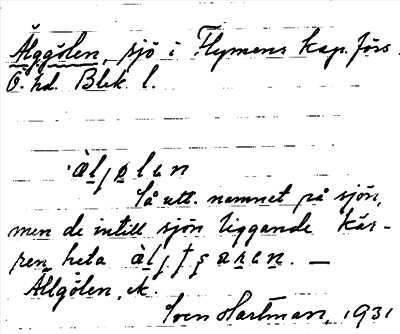 Älggölen, sjö i Flymens kap. förs.
Ö. hd. Blek. l.
Så utt. namnet på sjön,
men de intill sjön liggande kär-
ren heta
Ällgölen, ek.
Sven Hartman, 1931